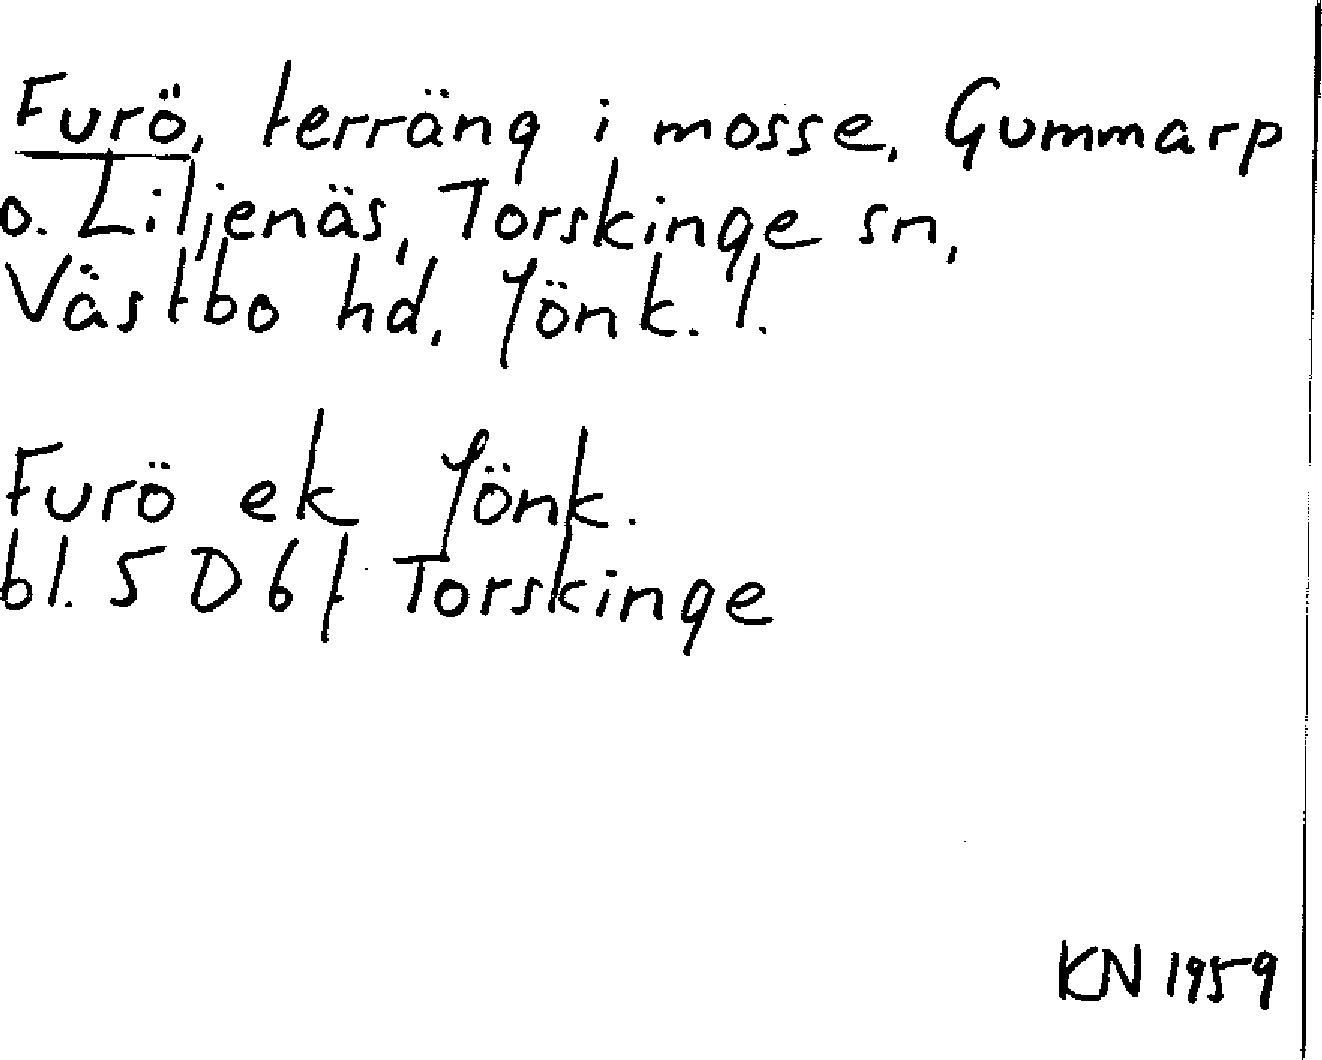 Furö, terräng i mosse, Gummarp
o. Liljenäs, Torskinge sn,
Västbo hd, Jönk. l.
Furö ek Jönk.
bl. 5 D 6 f Torskinge
KN 1959